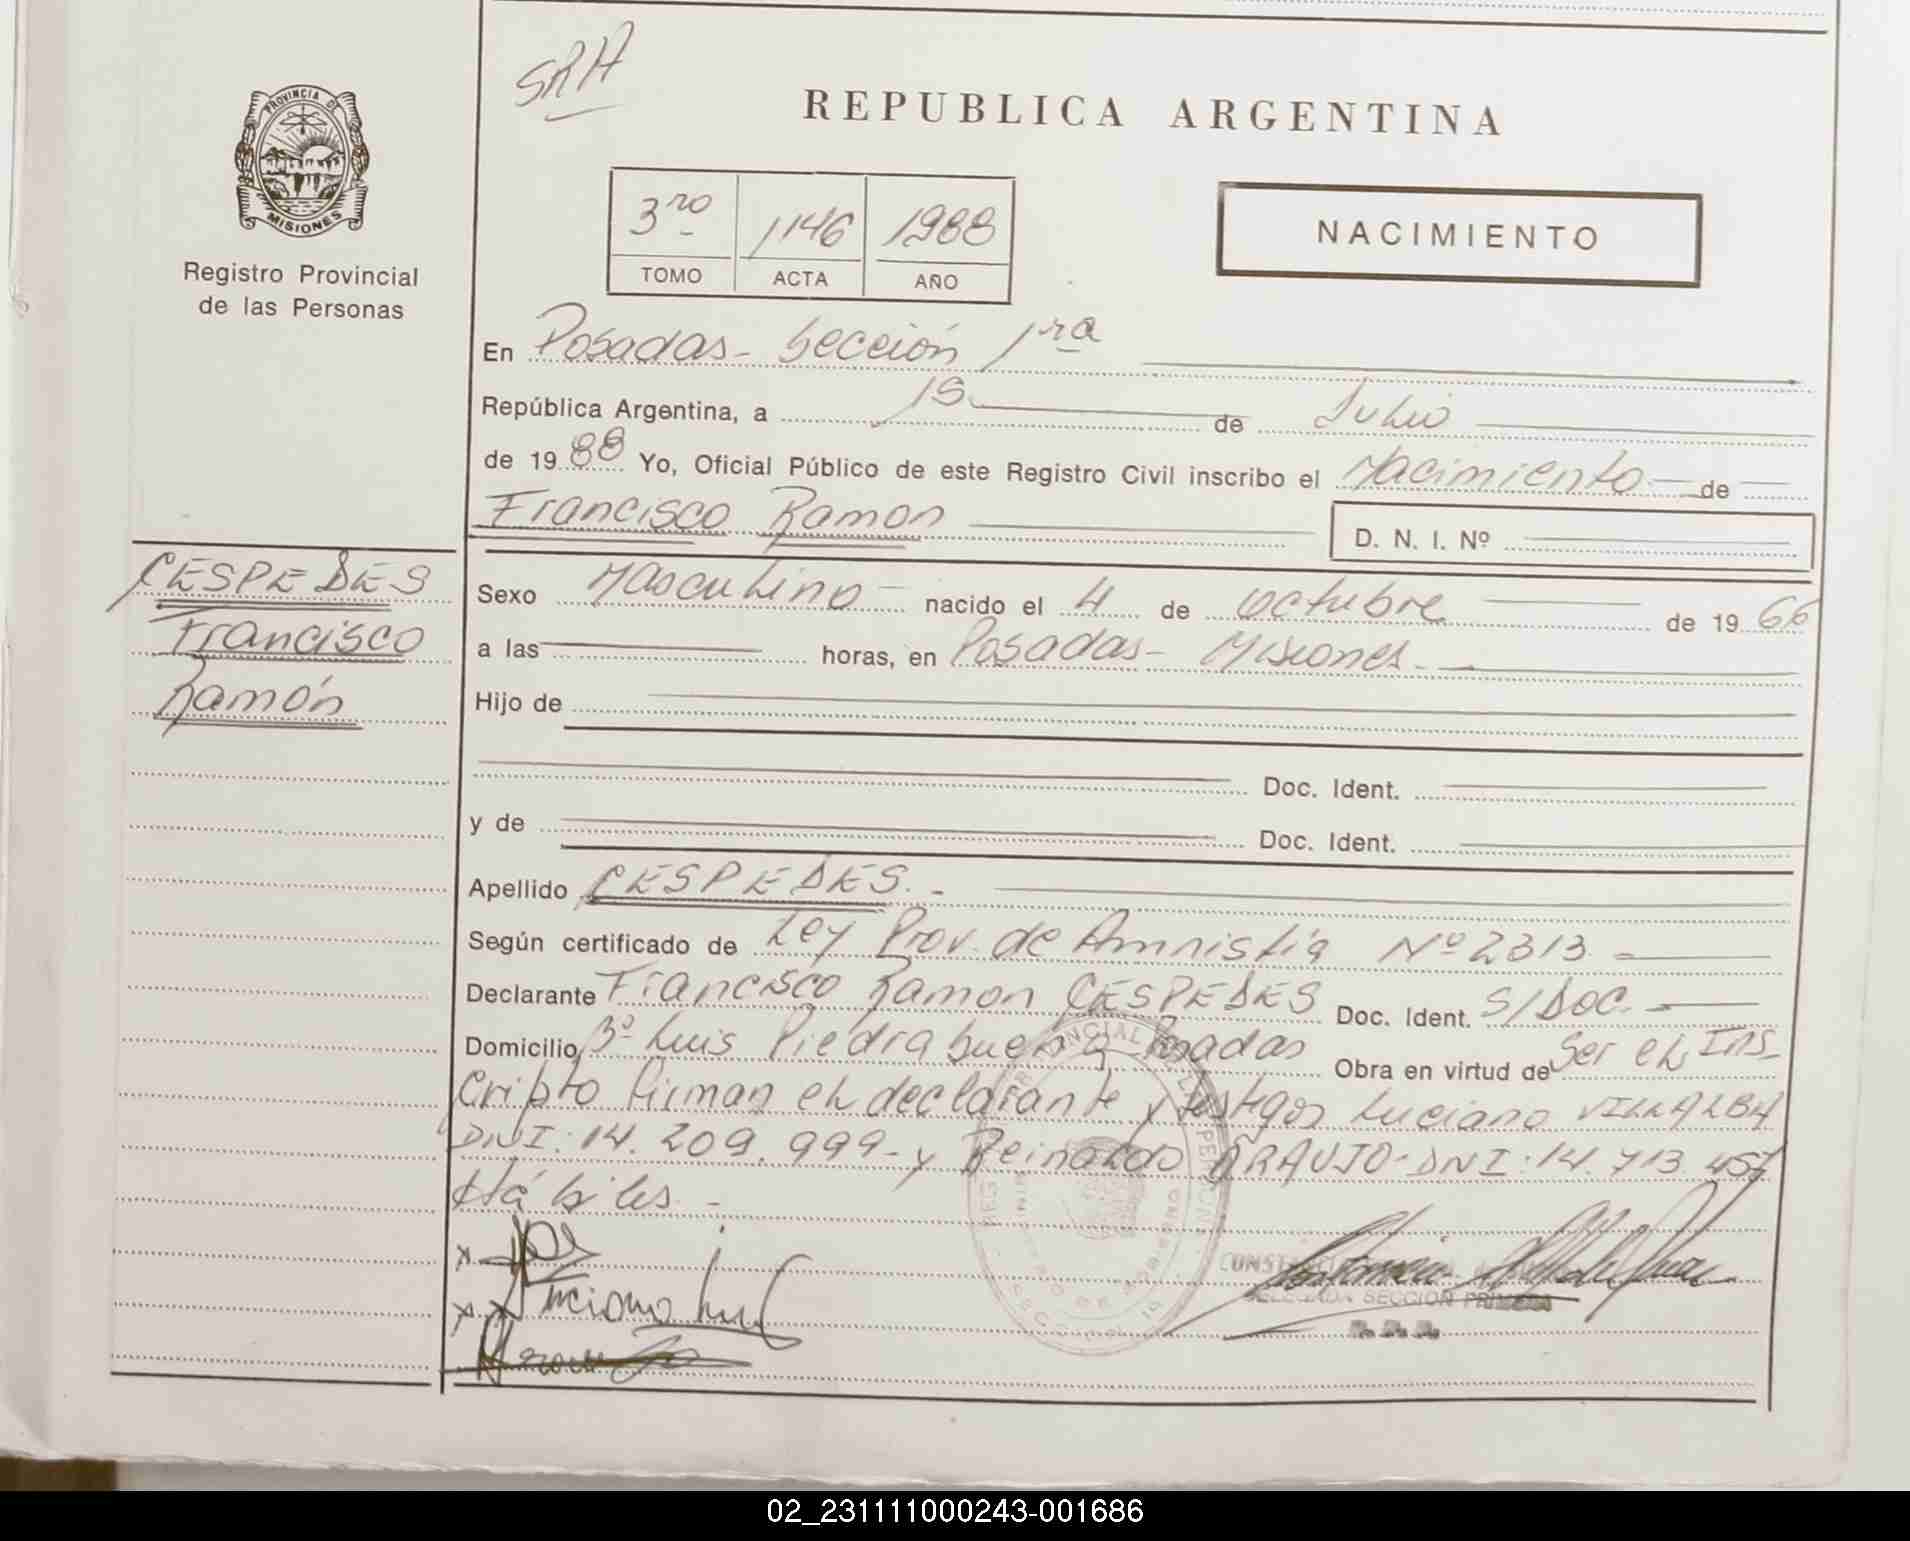 SRA
REPUBLICA ARGENTINA
PROVINCIA DE
MISIONES
Registro Provincial
de las Personas
3ro 1146 1988
TOMO ACTA AÑO
NACIMIENTO
En Posadas - Sección 1ra
República Argentina, a 15 de Julio
de 1988 Yo, Oficial Público de este Registro Civil inscribo el Nacimiento de
Francisco Ramon
D. N. I. Nº
CESPEDES
Francisco
Ramón
Sexo Masculino - nacido el 4 de octubre de 1966
a las horas, en Posadas - Misiones.
Hijo de
Doc. Ident.
y de Doc. Ident.
Apellido CESPEDES. -
Según certificado de Ley Prov. de Amnistía Nº 2313
Declarante Francisco Ramon CESPEDES Doc. Ident. S/DOC. -
Domicilio Bº Luis Piedrabuena Posadas Obra en virtud de Ser el Ins_
cripto firman el declarante y testigos Luciano VILLALBA
DNI: 14.209.999 - y Reinaldo ARAUJO - DNI: 14.713.457
Hábiles. -
x
x Luciano
DELEGADA SECCION PRIMERA
02_231111000243-001686